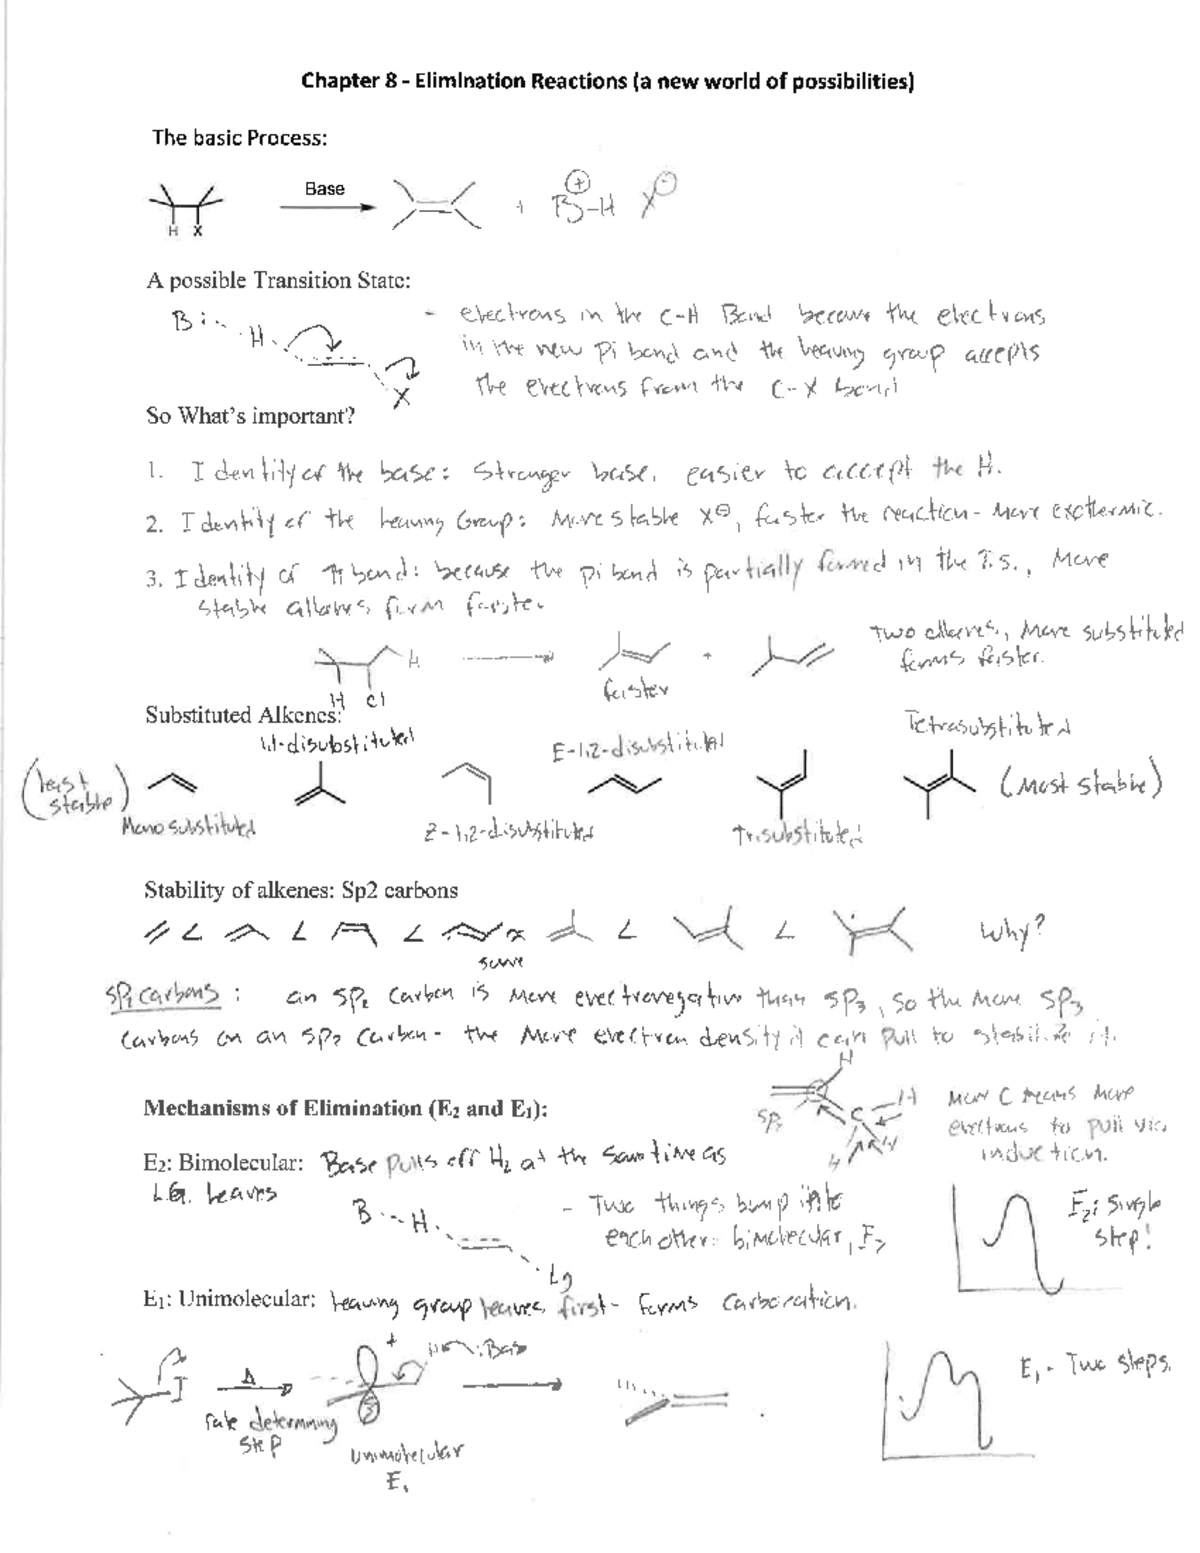 Chapter 8 - Elimination Reactions (a new world of possibilities)
The basic Process:
Base
+ B-H X
H X
A possible Transition State:
B: H X
- electrons in the C-H Bond become the electrons
in the new pi bond and the leaving group accepts
the electrons from the C-X bond
So What's important?
1. Identity of the base: Stronger base, easier to accept the H.
2. Identity of the Leaving Group: More stable X⊖, faster the reaction - More exothermic.
3. Identity of π bond: because the pi bond is partially formed in the T.S., More
stable alkenes form faster.
Two alkenes, More substituted
forms faster.
H
H Cl
+
faster
Substituted Alkenes:
1,1-disubstituted
E-1,2-disubstituted
Tetrasubstituted
(least
stable)
(Most stable)
Monosubstituted
Z-1,2-disubstituted
Trisubstituted
Stability of alkenes: Sp2 carbons
< < < ≈ < < Why?
same
SP2 carbons: an SP2 Carbon is More electronegative than SP3, so the More SP3
Carbons on an SP2 Carbon - the More electron density it can pull to stabilize it.
Mechanisms of Elimination (E2 and E1):
H
SP2 C H
H H
More C means More
electrons to pull via
induction.
E2: Bimolecular: Base pulls off H2 at the same time as
L.G. Leaves
B H Lg
- Two things bump into
each other: bimolecular, E2
E2: Single
step!
E1: Unimolecular: Leaving group leaves first - forms Carbocation.
I
Δ
+
:Base
rate determining
step
Unimolecular
E1
E1 - Two steps.